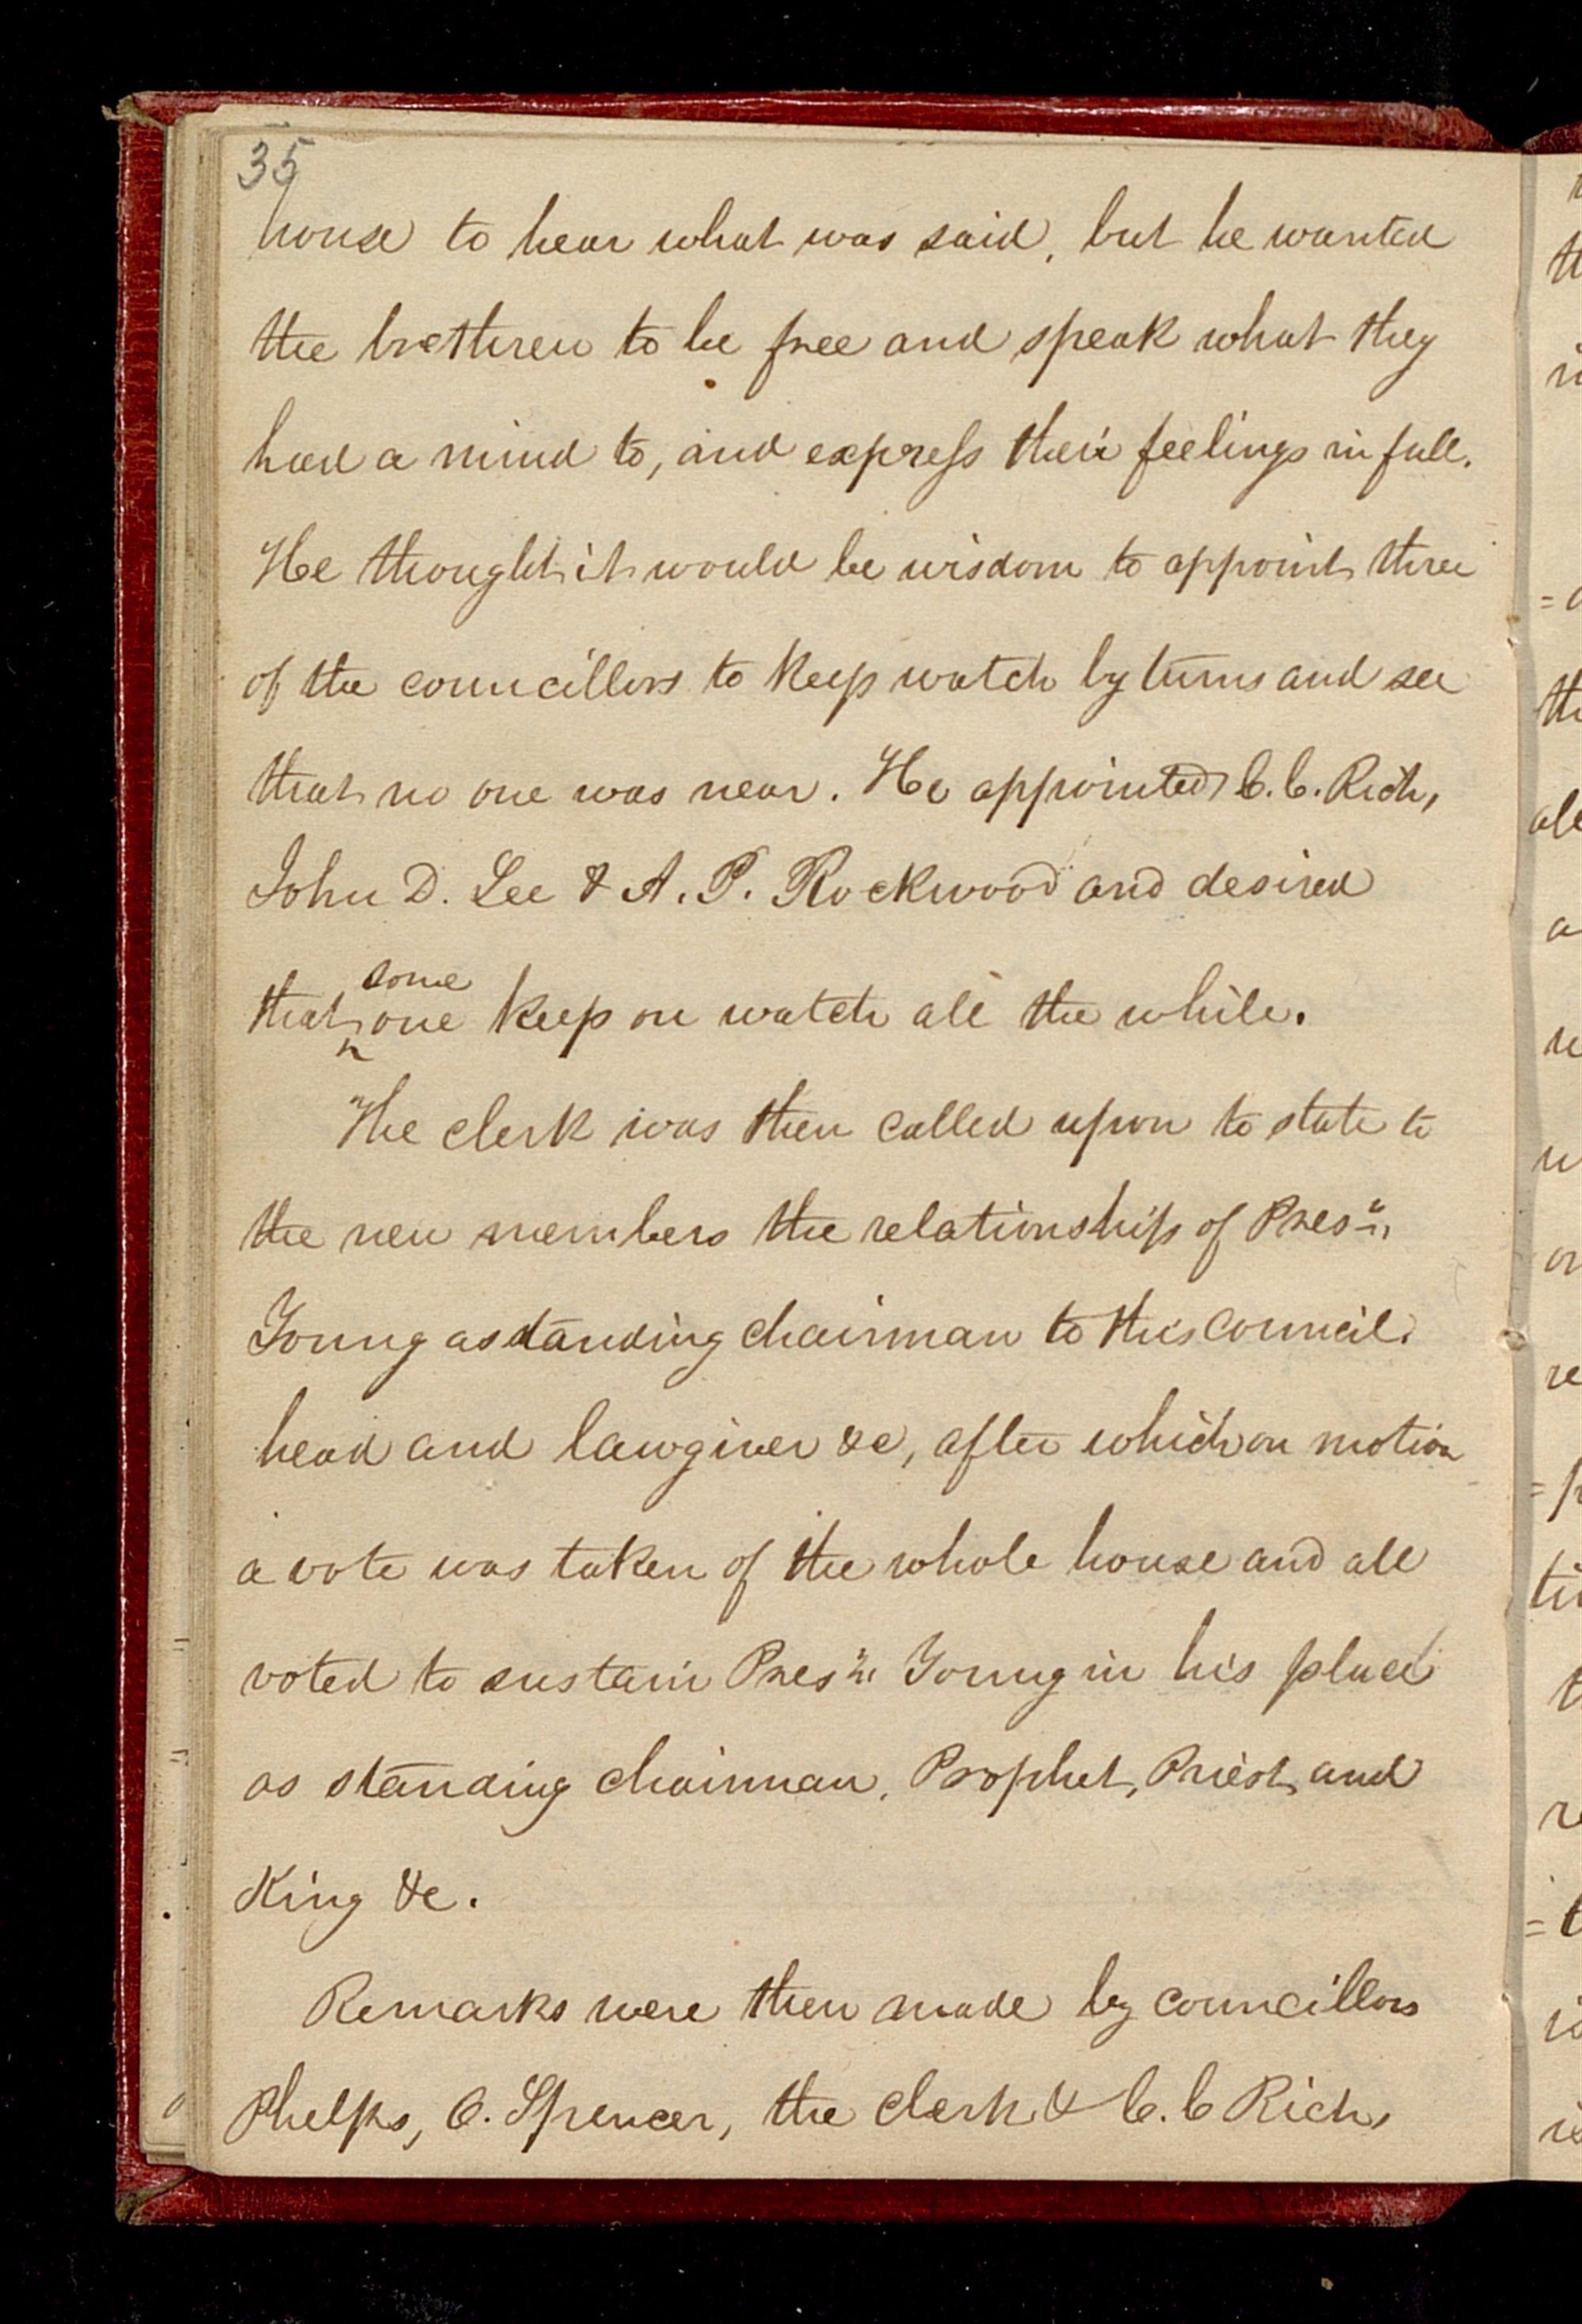 35
house to hear what was said, but he wanted
the brethren to be free and speak what they
had a mind to, and express their feelings in full.
He thought it would be wisdom to appoint three
of the councillors to keep watch by turns and see
that no one was near. He appointed C. C. Rich,
John D. Lee & A. P. Rockwood and desired
that some one keep on watch all the while.
The clerk was then called upon to state to
the new members the relationship of Prest.
Young as standing chairman to this council.
head and lawgiver &c, after which on motion
a vote was taken of the whole house and all
voted to sustain Prest. Young in his place
as standing chairman, Prophet, Priest and
King &c.
Remarks were then made by councillors
Phelps, O. Spencer, the clerk & C. C Rich,